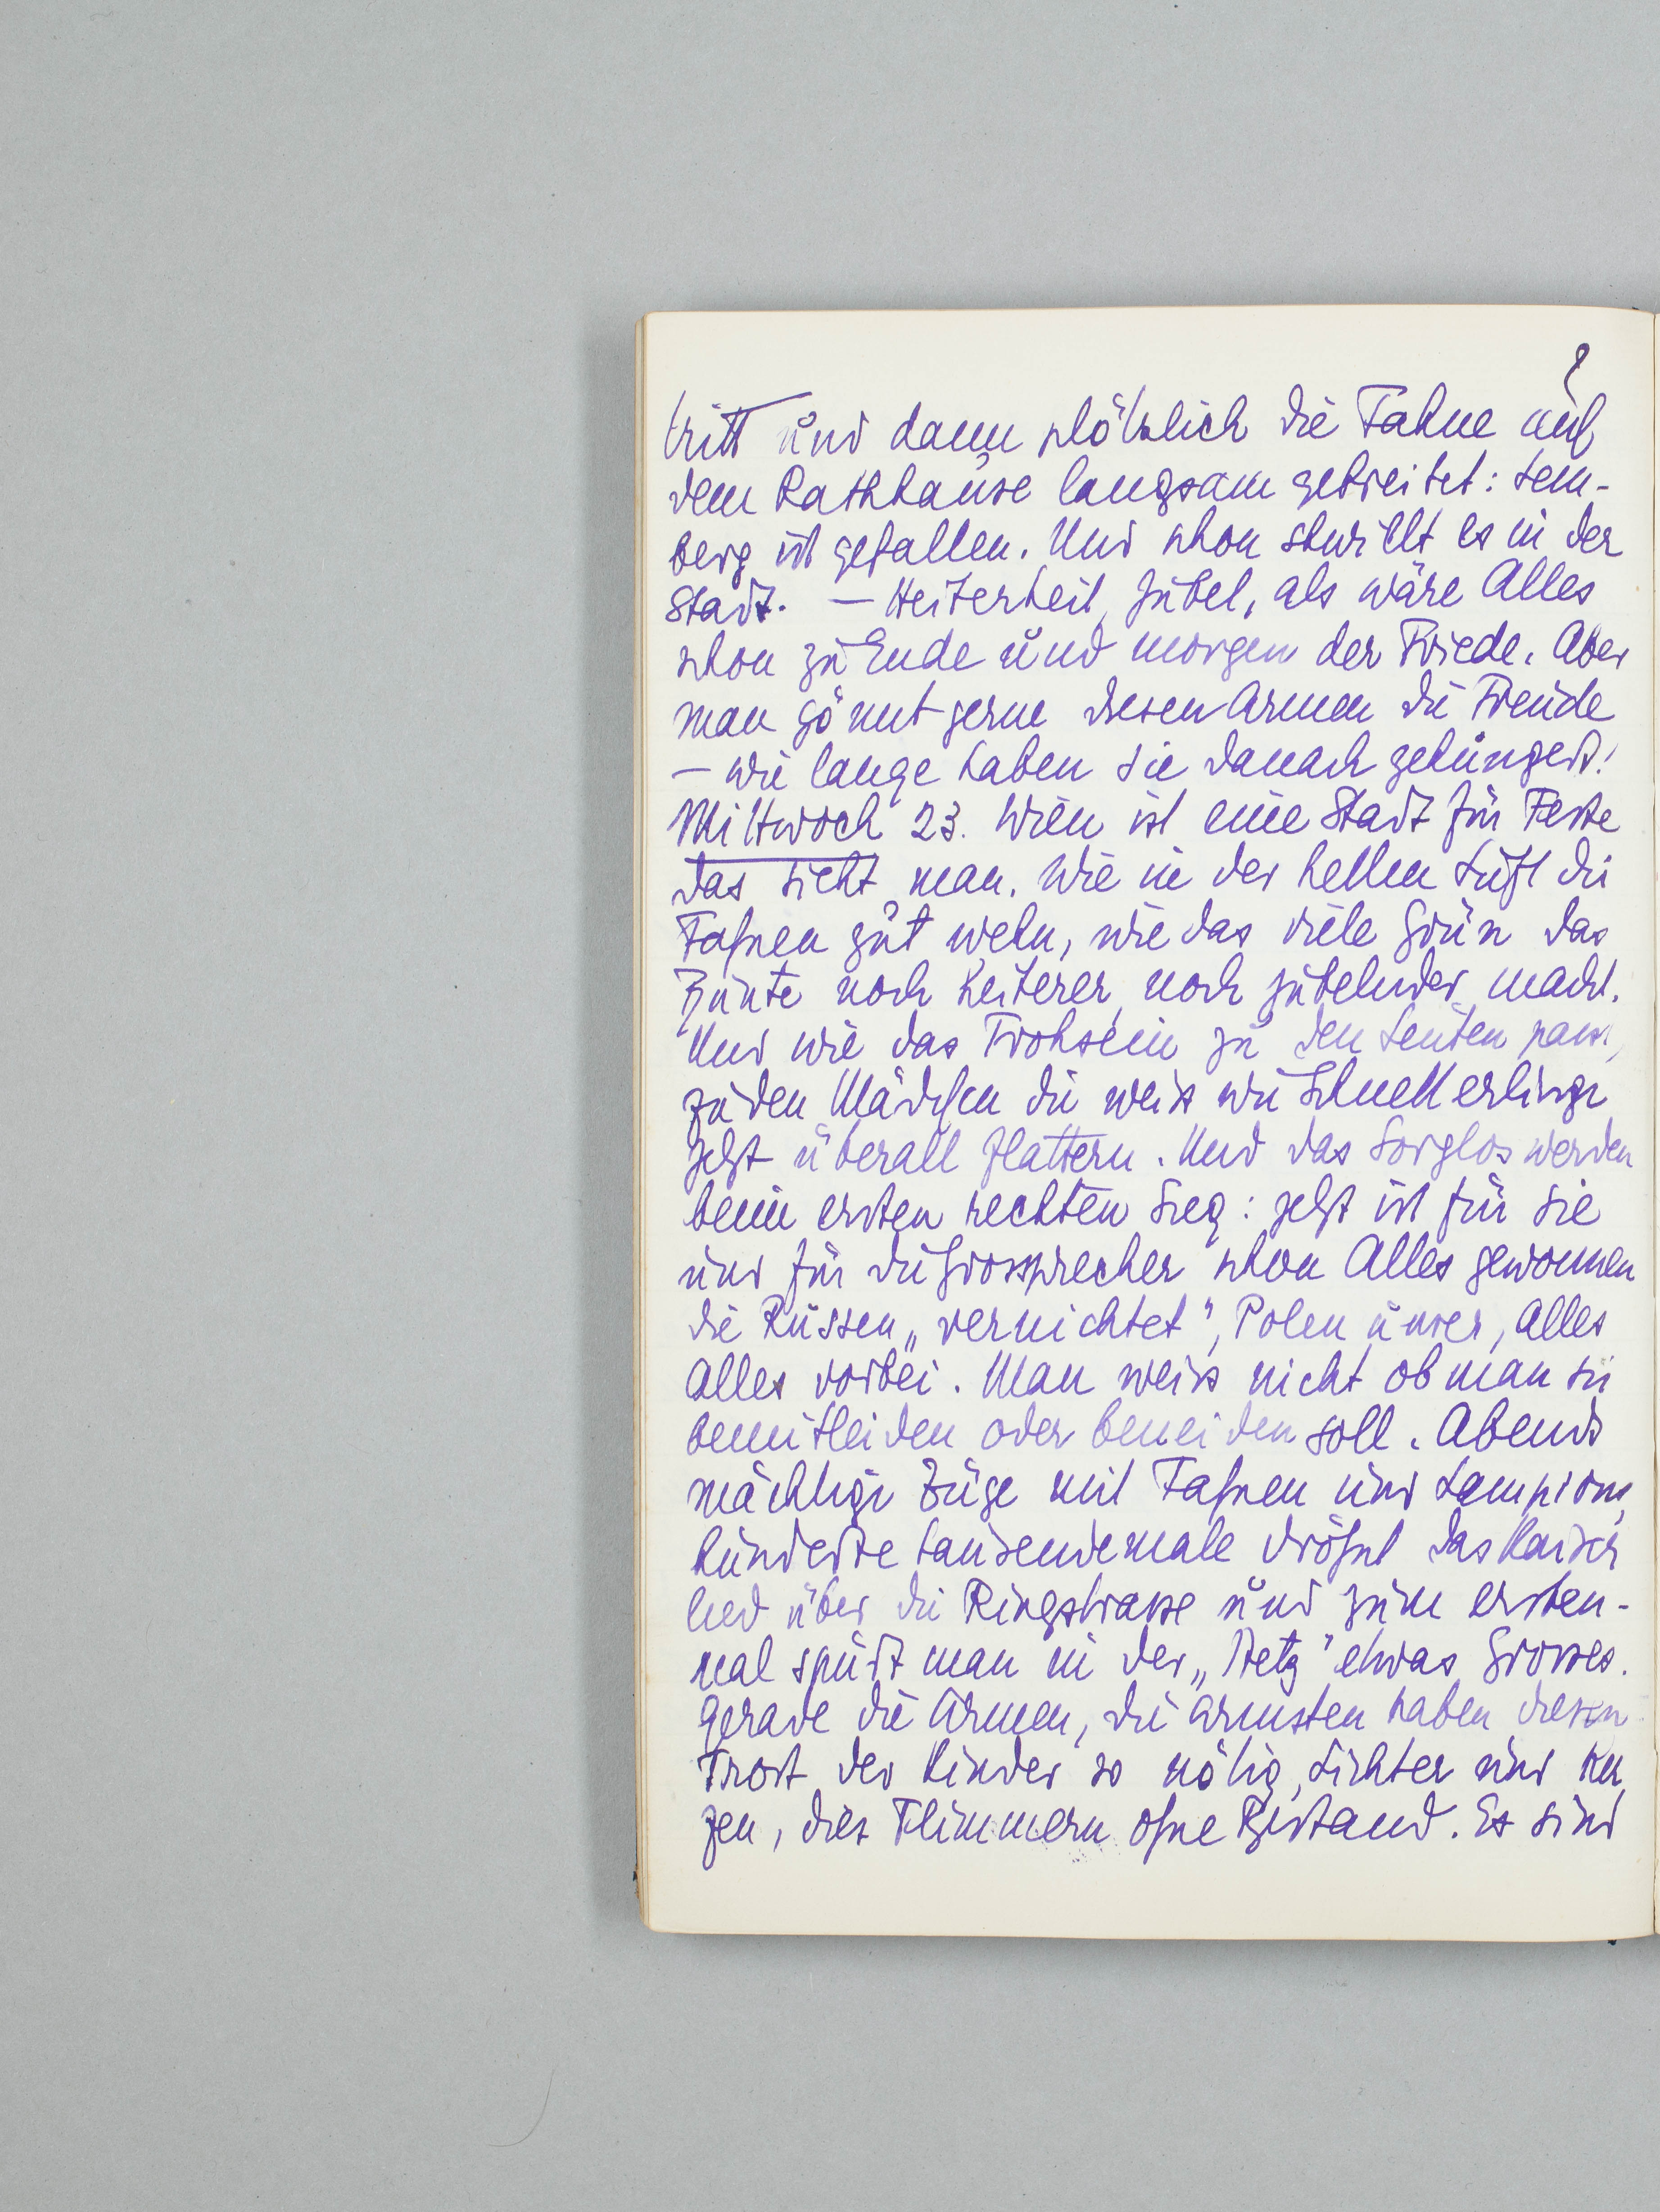 8
tritt und dann plötzlich die Fahne auf
dem Rathhause langsam gebreitet: Lem-
berg ist gefallen. Und schon schwillt es in der
Stadt. – Heiterkeit, Jubel, als wäre Alles
schon zu Ende und morgen der Friede. Aber
man gönnt gerne diesen Armen die Freude
– wie lange haben sie danach gehungert!
Mittwoch 23. Wien ist eine Stadt für Feste
das sieht man. Wie in der hellen Luft die
Fahnen gut wehn, wie das viele Grün das
Bunte noch heiterer, noch jubelnder macht.
Und wie das Frohsein zu den Leuten passt,
zu den Mädchen die weiss wie Schmetterlinge
jetzt überall flattern. Und das Sorglos werden
beim ersten rechten Sieg: jetzt ist für sie
und für die Grossprecher schon Alles gewonnen
die Russen „vernichtet", Polen unser, Alles
Alles vorbei. Man weiss nicht ob man sie
bemitleiden oder beneiden soll. Abends
mächtige Züge mit Fahnen und Lampions,
hunderte tausendemale dröhnt das Kaiser
lied über die Ringstrasse und zum ersten-
mal spürt man in der „Hetz" etwas Grosses.
Gerade die Armen, die ärmsten haben diesen
Trost der Kinder so nötig, Lichter und Ker
zen, dies Flimmern ohne Bestand. Es sind